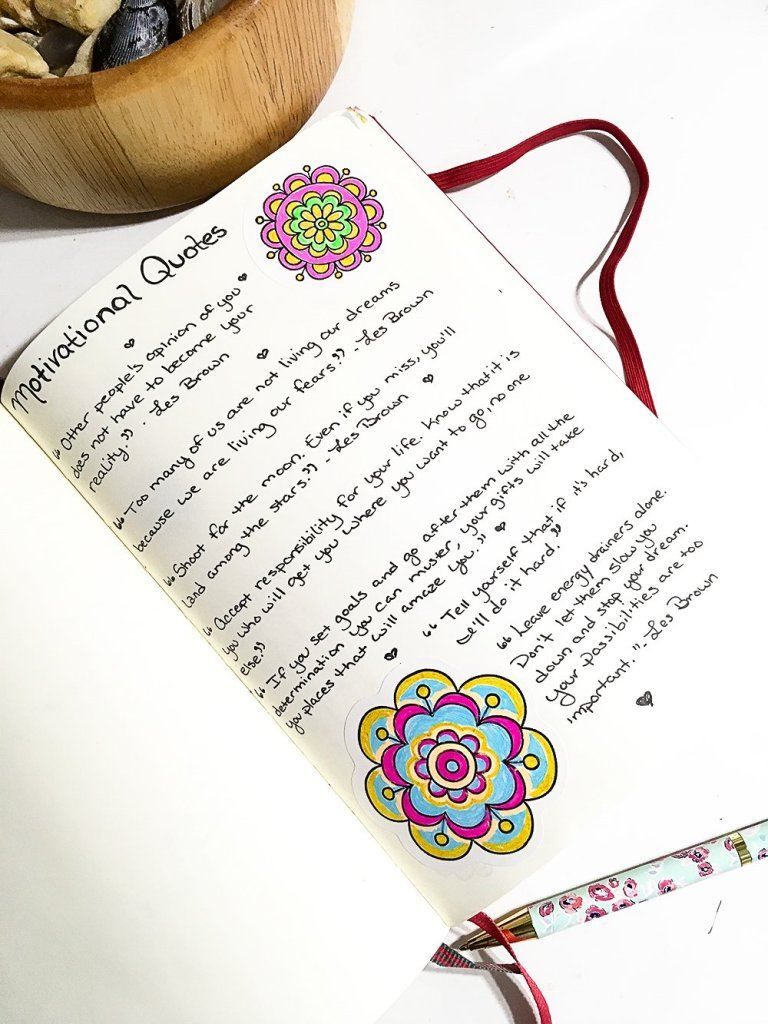 Motivational Quotes
"Other people's opinion of you
does not have to become your
reality." - Les Brown
"Too many of us are not living our dreams
because we are living our fears." - Les Brown
"Shoot for the moon. Even if you miss, you'll
land among the stars." - Les Brown
"Accept responsibility for your life. Know that it is
you who will get you where you want to go, no one
else."
"If you set goals and go after them with all the
determination you can muster, your gifts will take
you places that will amaze you."
"Tell yourself that if it's hard,
I'll do it hard."
"Leave energy drainers alone.
Don't let them slow you
down and stop your dream.
your possibilities are too
important." - Les Brown